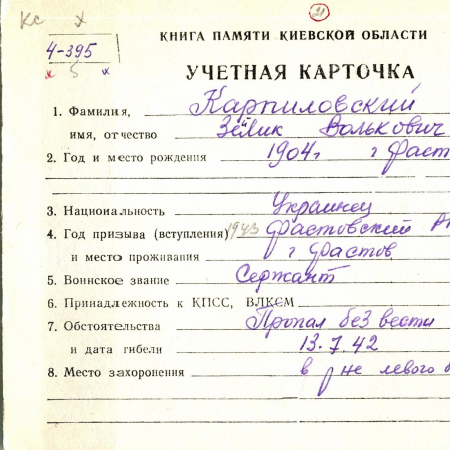 КС Х
21
4-395
х 5 х
КНИГА ПАМЯТИ КИЕВСКОЙ ОБЛАСТИ
УЧЕТНАЯ КАРТОЧКА
1. Фамилия, Карпиловский
имя, отчество Зейлик Волькович
2. Год и место рождения 1904г г Фаст
3. Национальность Украинец
4. Год призыва (вступления) 1943 Фастовский
и место проживания г Фастов
5. Воинское звание Сержант
6. Принадлежность к КПСС, ВЛКСМ
7. Обстоятельства Пропал без вести
и дата гибели 13.7.42
8. Место захоронения в р не левого